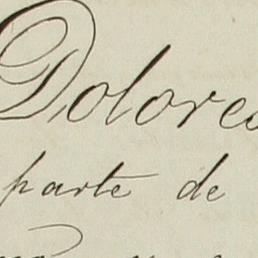 Dolores
parte de